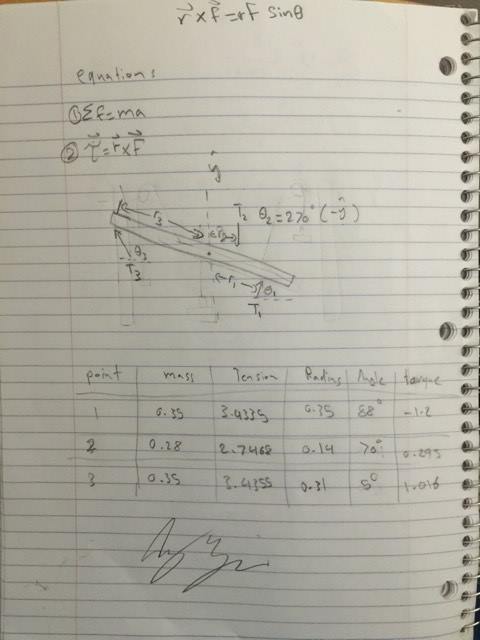 r⃗ × F⃗ = rF sinθ
equations
① Σf=ma
② τ⃗ = r⃗ × F⃗
ŷ
r₃ r₂ T₂ θ₂ = 270° (-ŷ)
θ₃ T₃ r₁ θ₁
T₁
point mass Tension Radius Angle torque
1 0.35 3.4335 0.35 88° -1.2
2 0.28 2.7468 0.14 70° 0.295
3 0.35 3.4355 0.31 5° 1.016